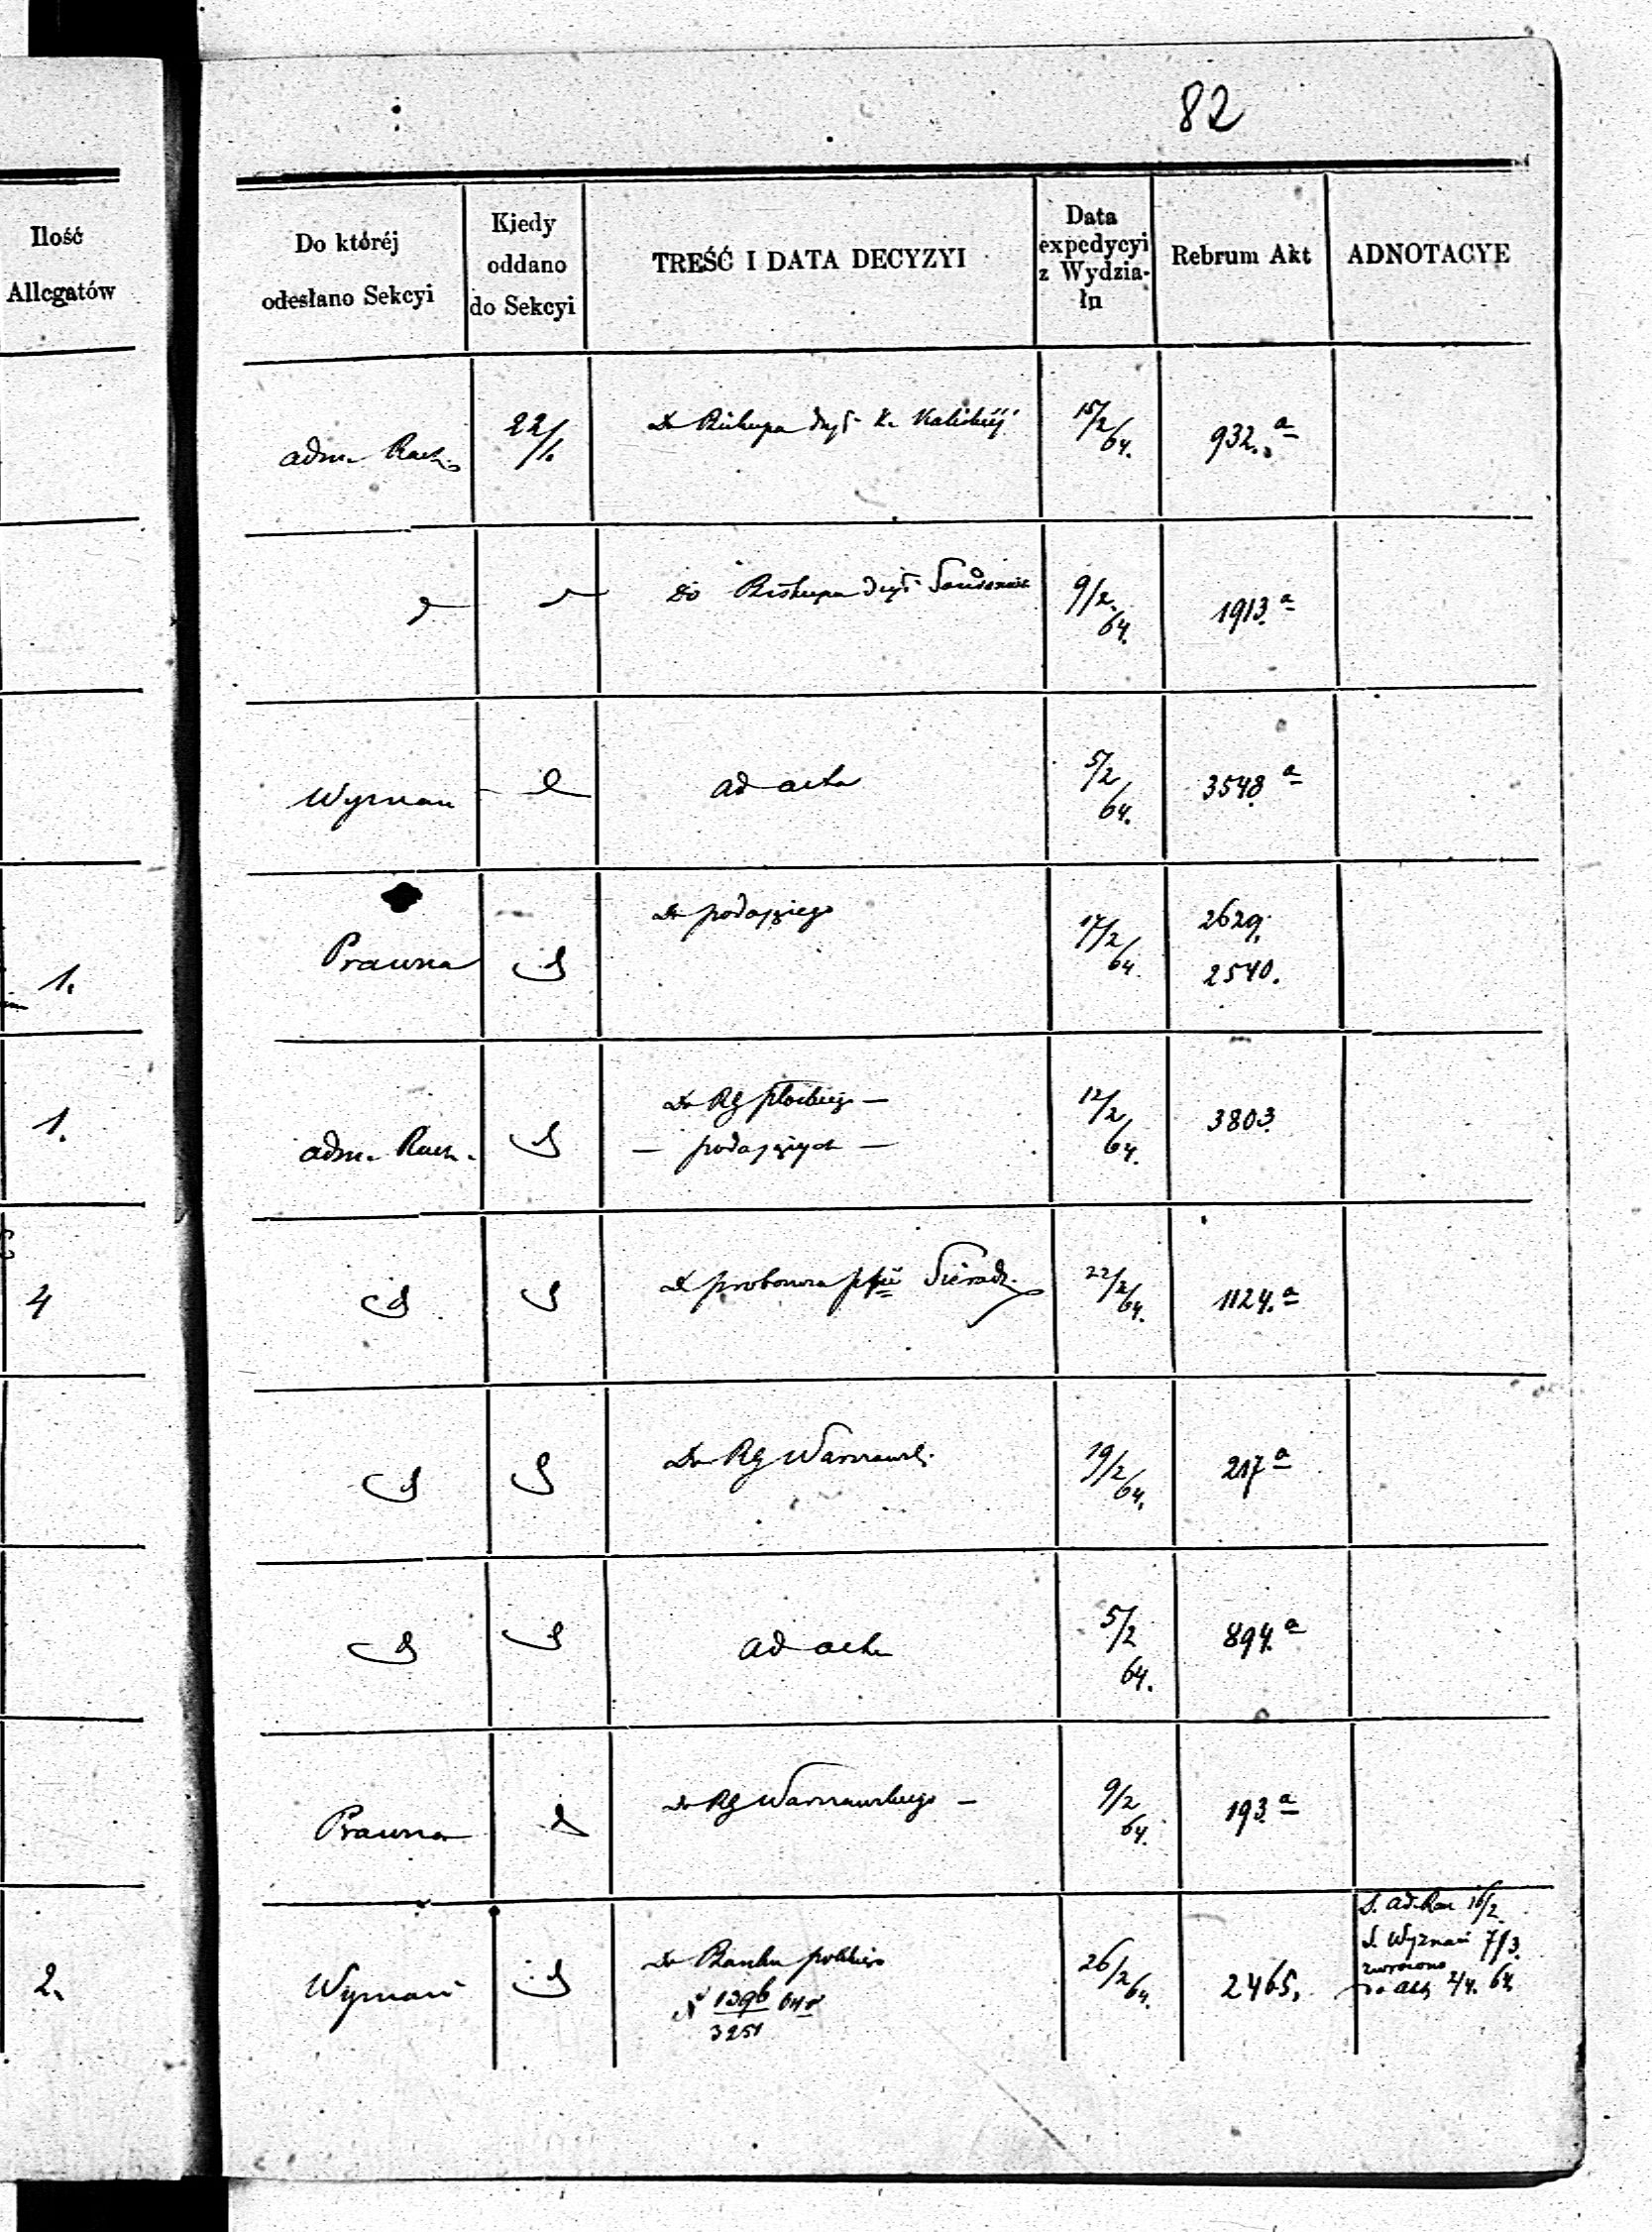 82
Ilość
Allegatów
Do któréj
odesłano Sekcyi
Kiedy
oddano
do Sekcyi
TREŚĆ I DATA DECYZYI
Data
expedycyi
z Wydzia-
łu
Rebrum Akt
ADNOTACYE
adm. Rach.
22/1.
Do Biskupa dyf. K. Kaliskiéj
15/2/64.
932. a
Do Biskupa dyf.
9/2/64.
1913. a
Wyznań
ad acta
5/2/64.
3548 a
1.
Prawna
Do podającego
17/2/64
2629.
2540.
1.
adm. Rach.
Do RG Płockiego —
— podających —
12/2/64.
3803.
4
Do proboszcza Sieradz.
22/2/64.
1124. a
Do RG Warszawsk.
19/2/64.
217 a
ad acta
5/2 64.
894. a
Prawna
Do RG Warszawskiego —
9/2 64.
193. a
2.
Wyznań
Do Banku polskiego
N 1396
3251
26/2/64.
2465.
S. ad. Rac 16/2
S. Wyznań 7/3.
zwrócono
2/4. 64